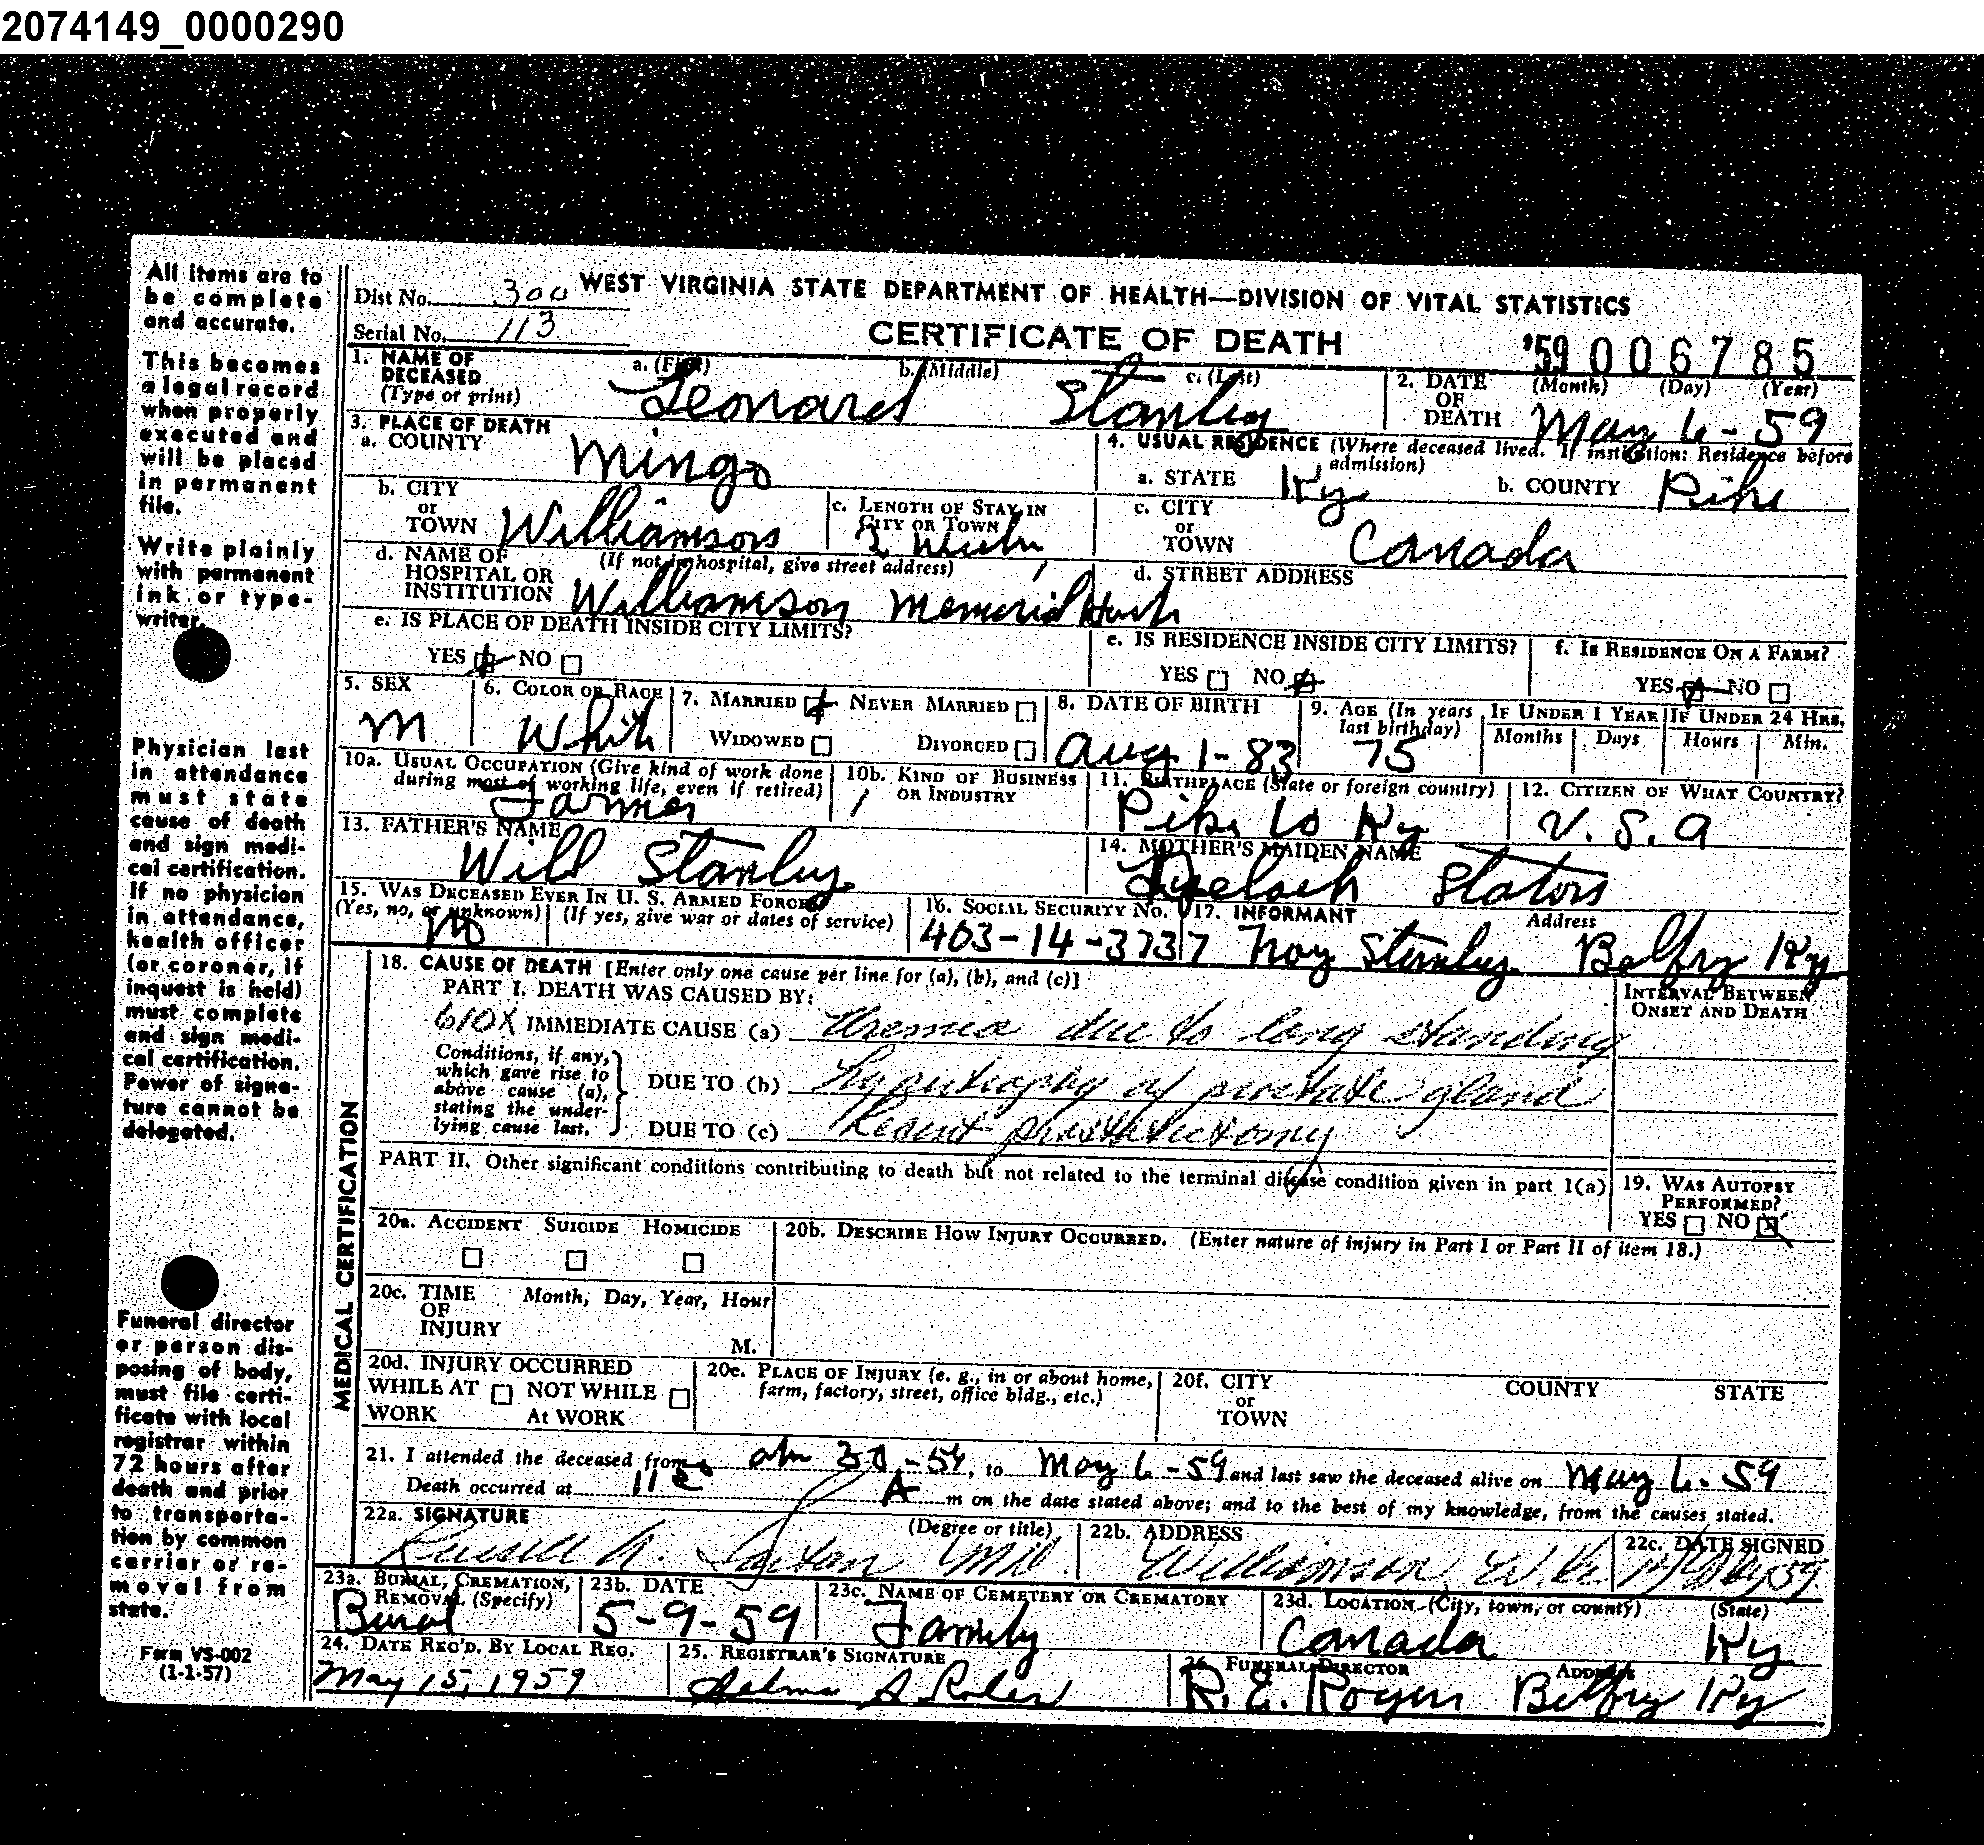 2074149_0000290
All items are to be complete and accurate.
This becomes a legal record when properly executed and will be placed in permanent file.
Write plainly with permanent ink or type-writer.
Physician last in attendance must state cause of death and sign medi-cal certification. If no physician in attendance, health officer (or coroner, if inquest is held) must complete and sign medi-cal certification. Power of signa-ture cannot be delegated.
Funeral director or person dis-posing of body, must file certi-ficate with local registrar within 72 hours after death and prior to transporta-tion by common carrier or re-moval from state.
Form VS-002
(1-1-57)
Dist No. 300 WEST VIRGINIA STATE DEPARTMENT OF HEALTH—DIVISION OF VITAL STATISTICS
Serial No. 113 CERTIFICATE OF DEATH '59 006785
1. NAME OF DECEASED (Type or print) a. (First) Leonard b. (Middle) c. (Last) Stanley 2. DATE OF DEATH (Month) (Day) (Year) May 6-59
3. PLACE OF DEATH
a. COUNTY Mingo
4. USUAL RESIDENCE (Where deceased lived. If institution: Residence before admission)
a. STATE Ky b. COUNTY Pike
b. CITY or TOWN Williamson c. LENGTH OF STAY IN CITY OR TOWN
c. CITY or TOWN Canada
d. NAME OF HOSPITAL OR INSTITUTION (If not in hospital, give street address) Williamson Memorial
d. STREET ADDRESS
e. IS PLACE OF DEATH INSIDE CITY LIMITS?
YES NO
e. IS RESIDENCE INSIDE CITY LIMITS?
YES NO
f. IS RESIDENCE ON A FARM?
YES NO
5. SEX M 6. COLOR OR RACE Whit 7. MARRIED NEVER MARRIED WIDOWED DIVORCED 8. DATE OF BIRTH Aug 1-83 9. AGE (In years last birthday) 75 IF UNDER 1 YEAR Months Days IF UNDER 24 HRS. Hours Min.
10a. USUAL OCCUPATION (Give kind of work done during most of working life, even if retired) Farmer 10b. KIND OF BUSINESS OR INDUSTRY 11. BIRTHPLACE (State or foreign country) Pike Co Ky 12. CITIZEN OF WHAT COUNTRY? U.S.A
13. FATHER'S NAME Will Stanley 14. MOTHER'S MAIDEN NAME
15. WAS DECEASED EVER IN U. S. ARMED FORCES? (Yes, no, or unknown) No (If yes, give war or dates of service) 16. SOCIAL SECURITY NO. 403-14-3737 17. INFORMANT Noy Stanley Address Belfry Ky
MEDICAL CERTIFICATION
18. CAUSE OF DEATH [Enter only one cause per line for (a), (b), and (c)]
PART I. DEATH WAS CAUSED BY:
INTERVAL BETWEEN ONSET AND DEATH
610X IMMEDIATE CAUSE (a) Uremia due to long standing
Conditions, if any, which gave rise to above cause (a), stating the under-lying cause last.
DUE TO (b) hypertrophy of prostate gland
DUE TO (c) Recent prostatectomy
PART II. Other significant conditions contributing to death but not related to the terminal disease condition given in part 1(a)
19. WAS AUTOPSY PERFORMED?
YES NO
20a. ACCIDENT SUICIDE HOMICIDE 20b. DESCRIBE HOW INJURY OCCURRED. (Enter nature of injury in Part I or Part II of item 18.)
20c. TIME OF INJURY Month, Day, Year, Hour M.
20d. INJURY OCCURRED
WHILE AT WORK NOT WHILE At WORK
20e. PLACE OF INJURY (e. g., in or about home, farm, factory, street, office bldg., etc.) 20f. CITY or TOWN COUNTY STATE
21. I attended the deceased from 30-59, to May 6-59 and last saw the deceased alive on May 6-59
Death occurred at 11 A m on the date stated above; and to the best of my knowledge, from the causes stated.
22a. SIGNATURE (Degree or title) Russell A. Salton MD. 22b. ADDRESS Williamson, W.Va. 22c. DATE SIGNED
23a. BURIAL, CREMATION, REMOVAL (Specify) Burial 23b. DATE 5-9-59 23c. NAME OF CEMETERY OR CREMATORY Family 23d. LOCATION (City, town, or county) (State) Canada Ky
24. DATE REC'D. BY LOCAL REG. May 15, 1959 25. REGISTRAR'S SIGNATURE 26. FUNERAL DIRECTOR ADDRESS R. E. Rogers Belfry Ky